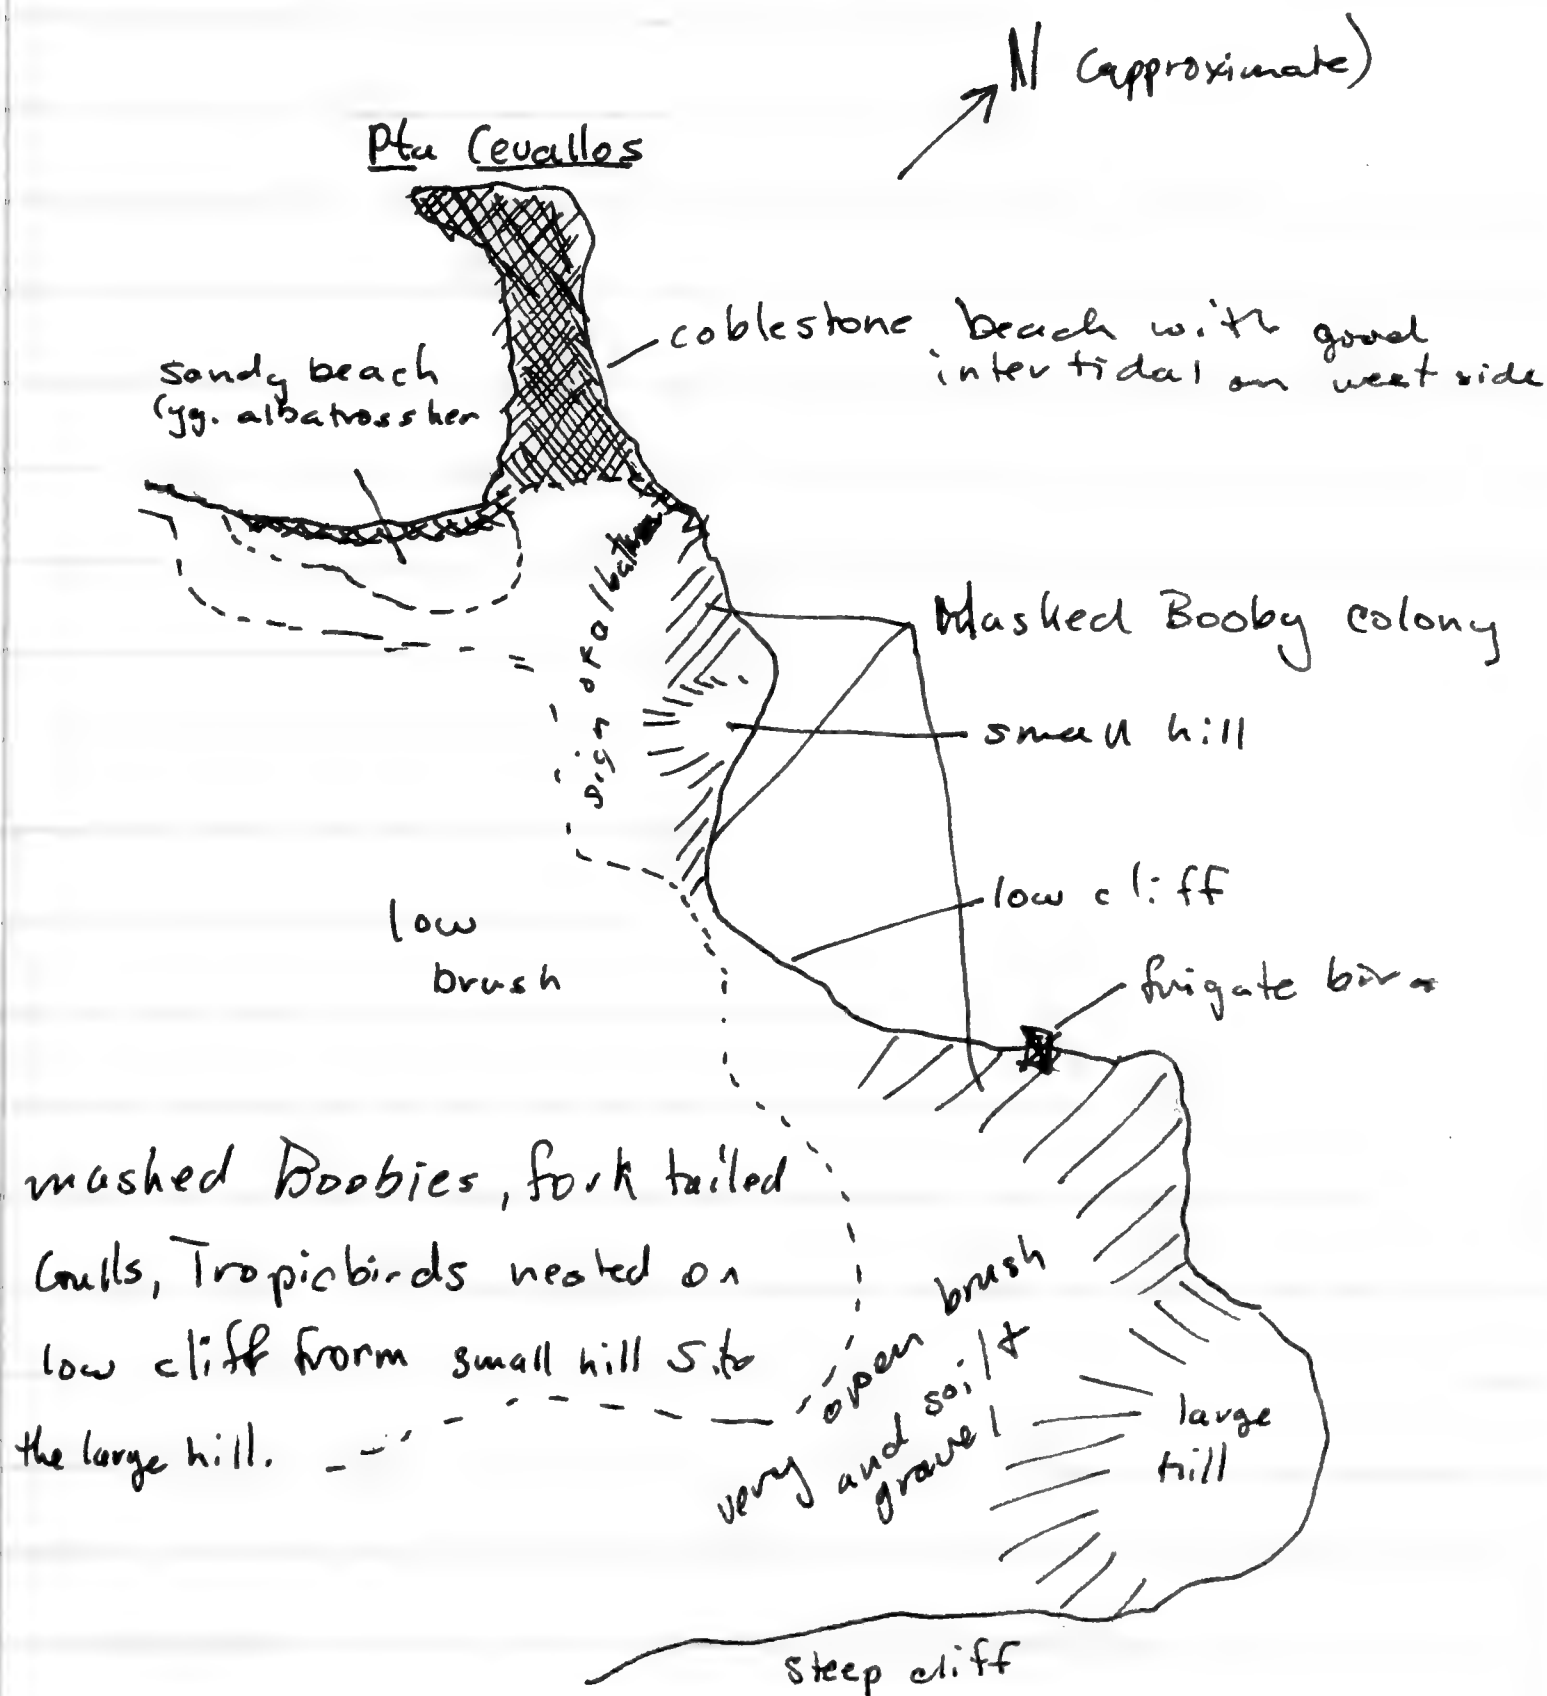 N (approximate)
Pta Cevallos
coblestone beach with good
intertidal on west side
sandy beach
(yg. albatross her
sign of albatross
Masked Booby colony
small hill
low cliff
low
brush
frigate bird
masked Boobies, fork tailed
Gulls, Tropicbirds nested on
low cliff frorm small hill S. to
the large hill.
very open brush
and soil +
gravel
large
hill
steep cliff